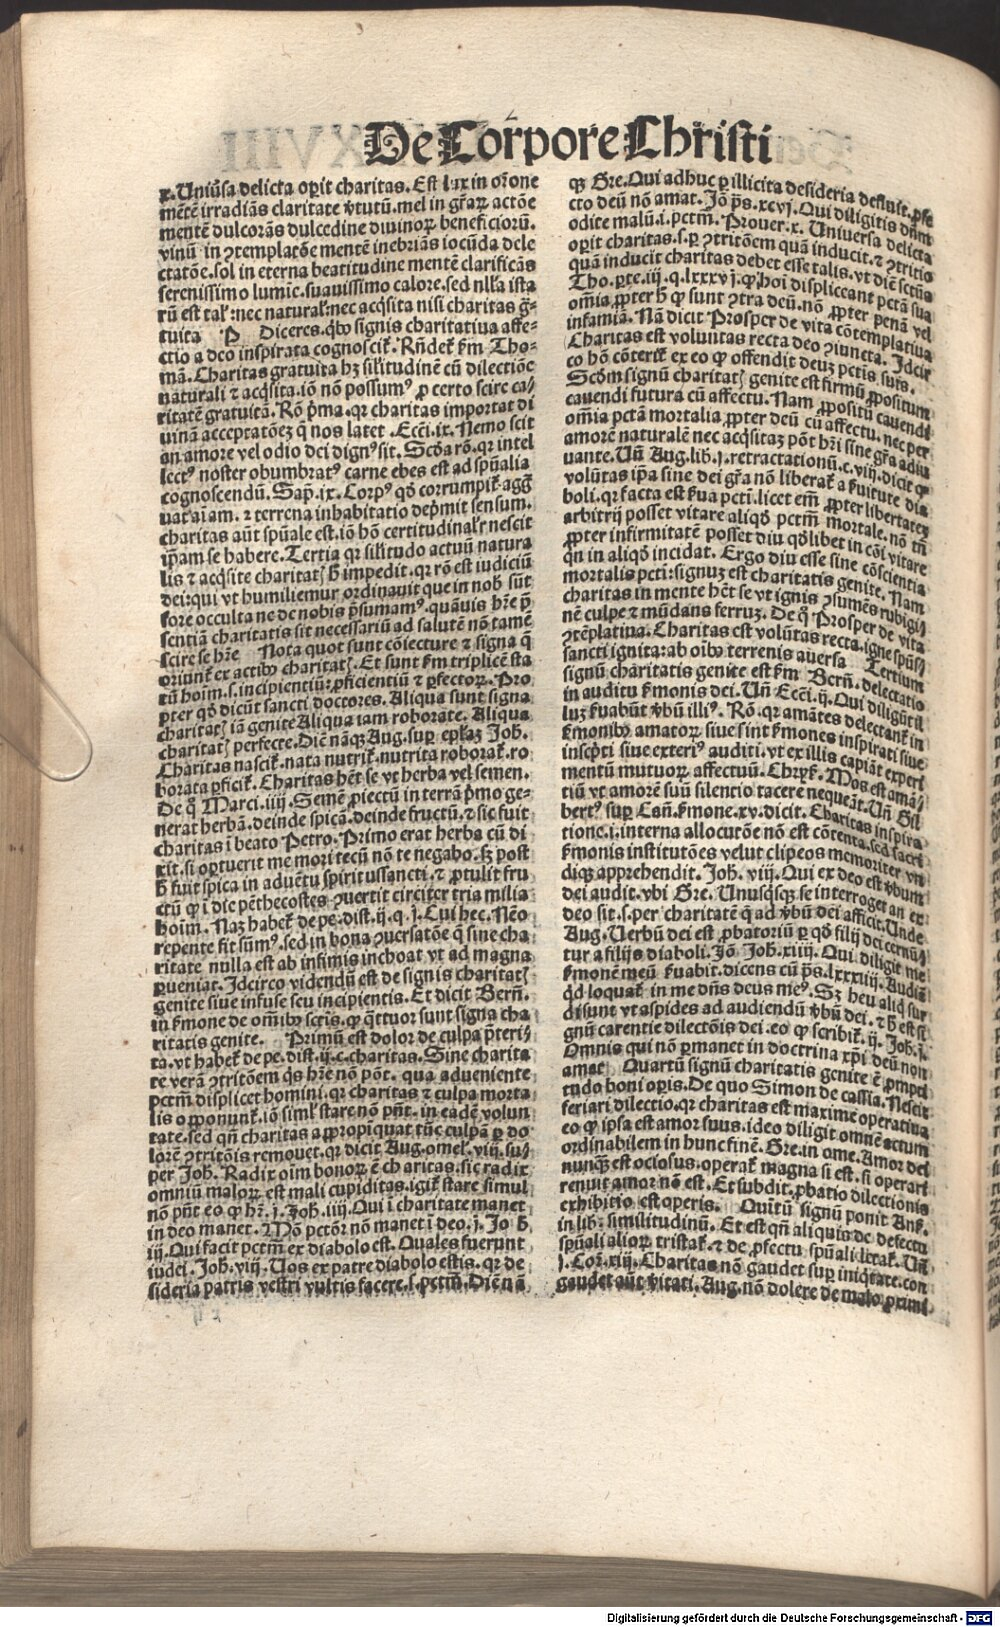 De Corpore Christi
x. Uniũsa delicta oꝑit charitas. Est lux in oꝛone
mẽtẽ irradiãs claritate v̓tutũ. mel in gr̃aꝝ actõe
mentẽ dulcorãs dulcedine diuinoꝝ beneficiorũ.
vinũ in ꝯtemplatõe mentẽ inebriãs iocũda dele
ctatõe. sol in eterna beatitudine mentẽ clarificãs
serenissimo lumiẽ. suauissimo calore. sed nlla ista
rũ est tal᷒: nec natural᷒: nec acq̃sita nisi charitas g̃-
tuita P Diceres. qbꝰ signis charitatiua affe-
ctio a deo inspirata cognoscit᷑. Rñdet᷑ ẞm Tho-
mã. Charitas gratuita hꝫ silitudinẽ cũ dilectiõe
naturali ⁊ acq̃sita. iõ nõ possumꝰ ꝓ certo scire ca/
ritatẽ gratuitã. Rõ pͥma. qꝛ charitas importat di
uinã acceptatõeꝫ q̃ nos latet. Ecci. ix. Nemo scit
an amore vel odio dei dignꝰ sit. Scḋa rõ. qꝛ intel
lectꝰ noster obumbratꝰ carne ebes est ad spũalia
cognoscendũ. Sap. ix. Corpꝰ qḋ corrumpit᷑ agg̃
uat aĩam. ⁊ terrena inhabitatio dep̃mit sensum.
charitas aũt spũale est. iõ hõ certitudinal᷒r nescit
ip̃am se habere. Tertia qꝛ silitudo actuũ natura
lis ⁊ acq̃site charitatꝭ ħ impedit. qꝛ rõ est iudiciũ
dei: qui vt humiliemur ordinauit que in nob̃ sũt
fore occulta ne de nobis p̃sumamꝰ. quãuis hr̃e p̃
sentiã charitatis sit necessariũ ad salutẽ nõ tamẽ
scire se hr̃e Nota quot sunt cõiecture ⁊ signa q̃
oriunt᷑ ex actibꝰ charitatꝭ. Et sunt ẞm triplicẽ sta
tũ hoim. s. incipientiũ: ꝓficientiũ ⁊ ꝑfectoꝝ. Pro
pter qḋ dicũt sancti doctores. Aliqua sunt signa
charitatꝭ iã genite Aliqua iam roborate. Aliqua
charitatꝭ perfecte. Diẽ nãqꝫ Aug. suꝑ epl̃aꝫ Joh.
Charitas nascit᷑. nata nutrit᷑. nutrita roborat᷑. ro
borata ꝑficit᷑. Charitas hẽt se vt herba vel semen.
De q̊ Marci. iiij. Semẽ ꝓiectũ in terrã pͥmo ge-
nerat herbã. deinde spicã. deinde fructũ. ⁊ sic fuit
charitas ĩ beato Petro. Primo erat herba cũ di
xit. si oportuerit me mori tecũ nõ te negabo. sꝫ post
ħ fuit spica in aduẽtu spiritussancti. ⁊ ꝓtulit fru
ctũ qꝛ ĩ die pẽthecostes ꝯuertit circiter tria milia
hoim. Naꝫ habet᷑ de pe. dist. ij. q. j. Cui hec. Nẽo
repente fit sũmꝰ. sed in bona ꝯuersatõe q̃ sine cha
ritate nulla est ab infimis inchoat vt ad magna
ꝑueniat. Jdcirco videndũ est de signis charitatꝭ
genite siue infuse seu incipientis. Et dicit Berñ.
in ẞmone de om̃ibꝰ sctĩs. ꝙ q̃ttuor sunt signa cha
ritatis genite. Primũ est dolor de culpa p̃teri-
ta. vt habet᷑ de pe. dist. ij. c. charitas. Sine charita
te verã ꝯtritõem q̃s hr̃e nõ põt. qua adueniente
pctm̃ displicet homini. qꝛ charitas ⁊ culpa morta
lis opponunt᷑. iõ siml᷒ stare nõ pñt. in eadẽ volun
tate. sed qñ charitas appropiquat tũc culpã ꝑ do
lorẽ ꝯtritõis remouet. qꝛ dicit Aug. omel᷒. viij. su/
per Joh. Radix oĩm bonoꝝ ẽ charitas. sic radix
omniũ maloꝝ est mali cupiditas. igit᷑ stare simul
nõ pñt eo ꝙ hr̃. j. Joh. iiij. Qui ĩ charitate manet
in deo manet. Mõ pctõr nõ manet ĩ deo. j. Joh.
iij. Qui facit pctm̃ ex diabolo est. Quales fuerunt
iudei. Joh. viij. Uos ex patre diabolo estis. qꝛ de
sideria patris vestri vultis facere. s. pctm̃. Diẽ nã
qꝫ Gre. Qui adhuc ꝑ illicita desideria defluit. ꝓfe
cto deũ nõ amat. Jõ ps̃. xcvj. Qui diligitis dñm
odite malũ. i. pctm̃. Prouer. x. Uniuersa delicta
oꝑit charitas. s. ꝑ ꝯtritõem quã inducit. ⁊ ꝯtritio
quã inducit charitas debet esse talis. vt diẽ sctũs
Tho. ꝑte. iij. q. lxxxvj. ꝙ hoĩ displiceant pctã sua
om̃ia ꝓpter ħ ꝙ sunt ꝯtra deũ. nõ ꝓpter penã vel
infamiã. Nã dicit Prosper de vita cõtemplatiua
Charitas est voluntas recta deo ꝯiuncta. Jdcir
co hõ cõterit᷑ ex eo ꝙ offendit deuꝫ pctĩs suis.
Scḋm signũ charitatꝭ genite est firmũ ꝓpositum
cauendi futura cũ affectu. Nam ꝓpositũ cauendi
om̃ia pctã mortalia ꝓpter deũ cũ affectu. nec per
amorẽ naturalẽ nec acq̃sitaꝫ põt hr̃i sine gr̃a adiu
uante. Uñ Aug. lib. j. retractationũ. c. viij. dicit ꝙ
volũtas ip̃a sine dei gr̃a nõ liberat᷑ a ẞuitute dia
boli. qꝛ facta est ẞua pctĩ. licet em̃ ꝓpter libertateꝫ
arbitrij posset vitare aliqḋ pctm̃ mortale. nõ tñ
ꝓpter infirmitatẽ posset diu qḋlibet in cõi vitare
q̃n in aliqḋ incidat. Ergo diu esse sine cõscientia
mortalis pctĩ: signuꝫ est charitatis genite. Nam
charitas in mente hẽt se vt ignis ꝯsumẽs rubigi/
nẽ culpe ⁊ mũdans ferruꝫ. De q̊ Prosper de vita
ꝯtẽplatiua. Charitas est volũtas recta. igne spũs/
sancti ignita: ab oibꝰ terrenis auersa Tertium
signũ charitatis genite est ẞm Berñ. delectatio
in auditu ẞmonis dei. Uñ Ecci. ij. Qui diligũt il
luꝫ ẞuabũt v̓bũ illiꝰ. Rõ. qꝛ amãtes delectant᷑ in
ẞmonibꝰ amatoꝝ siue sint ẞmones inspirati siue
inscp̃ti siue exteriꝰ auditi. vt ex illis capiãt experi
mentũ mutuoꝝ affectuũ. Chrꝑẞ. Mos est amã/
tiũ vt amorẽ suũ silentio tacere nequeãt. Uñ Gil
bertꝰ suꝑ Cañ. ẞmone. xv. dicit. Charitas inspira
tione. i. interna allocutõe nõ est cõtenta. sed sacri
ẞmonis institutões velut clipeos memoriter vn
diqꝫ apprehendit. Joh. viij. Qui ex deo est v̓bum
dei audit. vbi Gre. Unusq̃sqꝫ se interroget an ex
deo sit. s. per charitatẽ q̃ ad v̓bũ dei afficit. Unde
Aug. Uerbũ dei est ꝓbatoriũ ꝑ qḋ filij dei cernũ/
tur a filijs diaboli. Jõ Joh. xiiij. Qui diligit me
ẞmonẽ meũ ẞuabit. dicens cũ ps̃. lxxxiiij. Audiã
q̃d loquat᷑ in me dñs deus meꝰ. Sꝫ heu aliq̃ sur
di sunt vt aspides ad audiendũ v̓bũ dei. ⁊ ħ est si
gnũ carentie dilectõis dei. eo ꝙ scribit᷑. ij. Joh. j.
Omnis qui nõ ꝑmanet in doctrina xp̃i deũ non
amat Quartũ signũ charitatis genite ẽ ꝓmpti
tudo boni oꝑis. De quo Simon de cassia. Nescit
feriari dilectio. qꝛ charitas est maxime operatiua
eo ꝙ ipsa est amor suus. ideo diligit omnẽ actum
ordinabilem in hunc finẽ. Gre. in ome. Amor dei
nunq̃ꝫ est ociosus. operat᷑ magna si est. si operari
renuit amor nõ est. Et subdit. ꝓbatio dilectionis
exhibitio est operis. Quĩtũ signũ ponit Anß.
in lib᷒. similitudinũ. Et est qñ aliquis de defectu
spũali alioꝝ tristat᷑. ⁊ de ꝓfectu spũali letat᷑. Uñ
j. Cor. xiij. Charitas nõ gaudet suꝑ iniq̃tate. con
gaudet aũt v̓itati. Aug. nõ dolere de malo ꝓximi
Digitalisierung gefördert durch die Deutsche Forschungsgemeinschaft - DFG